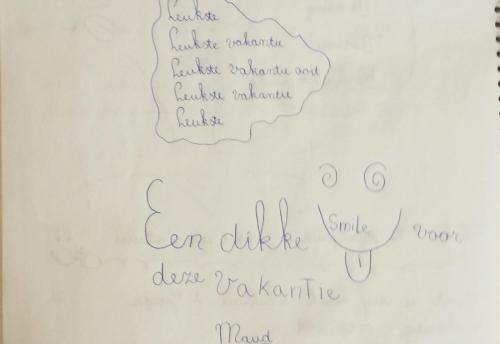 Leukste
Leukste vakantie
Leukste vakantie ooit
Leukste vakantie
Leukste
Een dikke Smile voor
deze vakantie
Maud